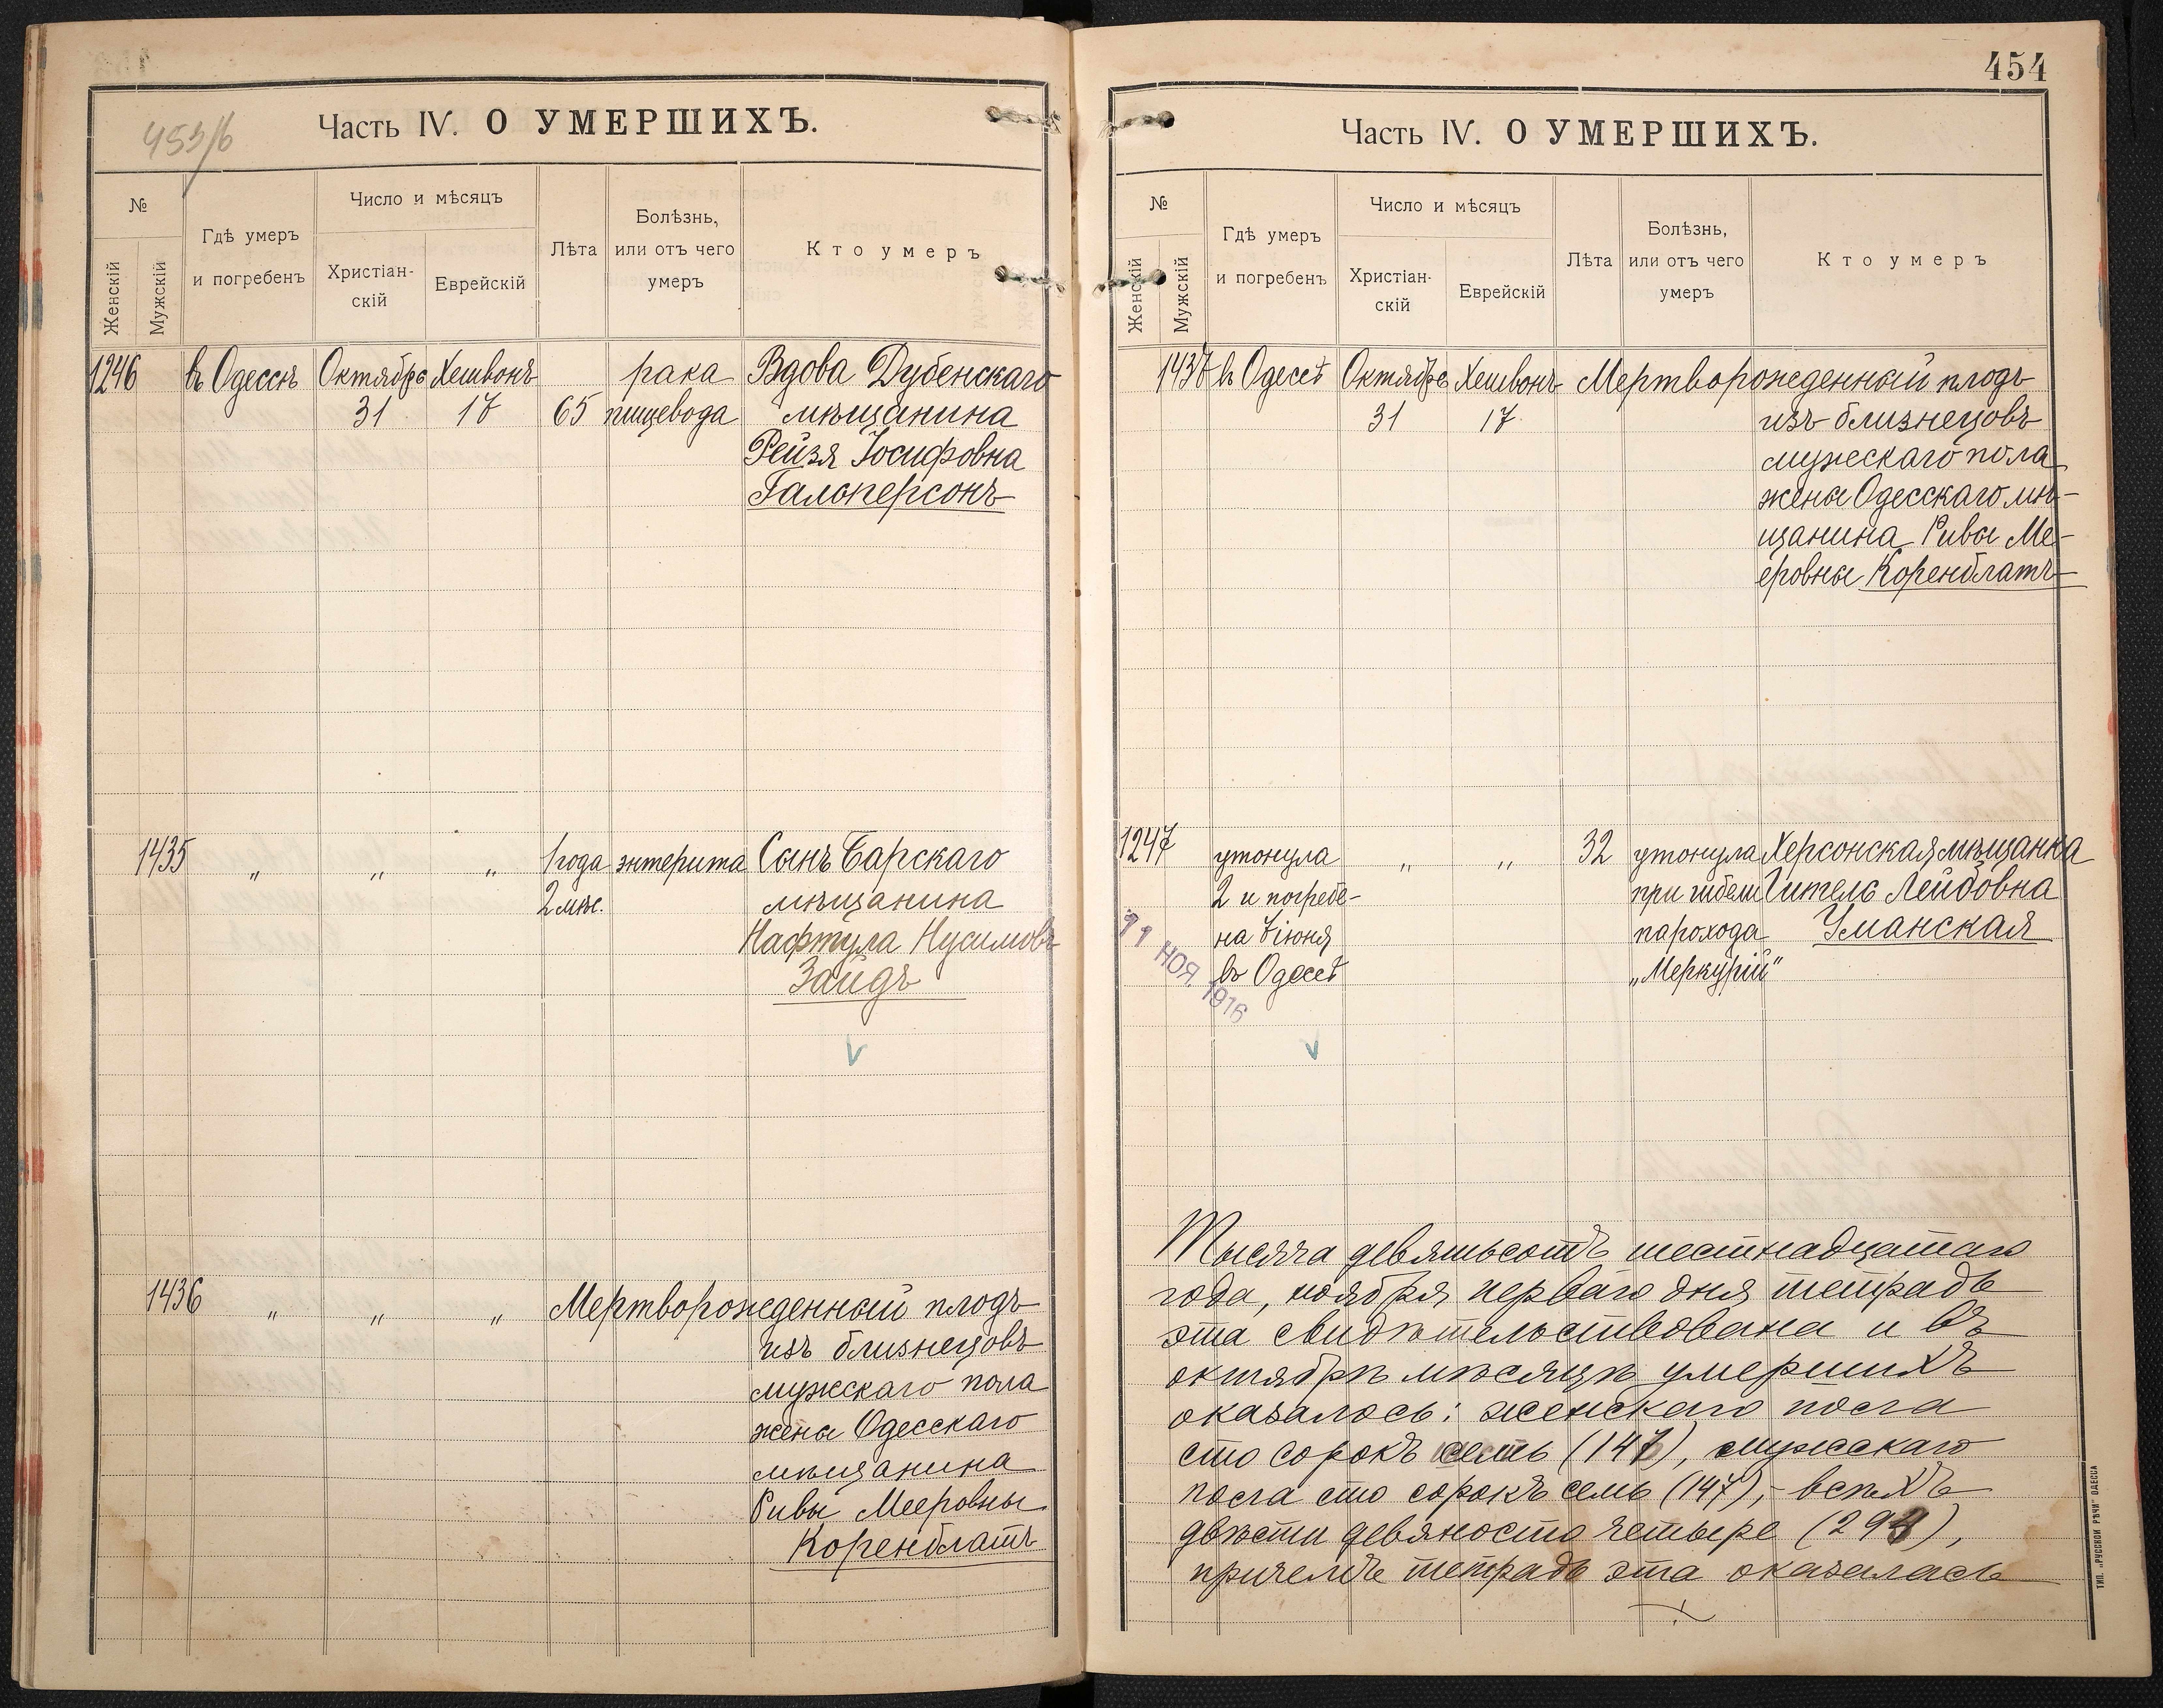 453/б
Часть IV. О УМЕРШИХЪ.
№
Женскій
Мужскій
Гдѣ умеръ
и погребенъ
Число и мѣсяцъ
Христіан-
скій
Еврейскій
Лѣта
Болѣзнь,
или отъ чего
умеръ
Кто умеръ
1246 въ Одессѣ Октябрь Хешвонъ рака Вдова Дубенскаго
31 17 65 пищевода мѣщанина
Рейзя Іосифовна
Гальперсонъ
1435 " " " 1 года энтерита Сынъ Барскаго
2 мѣс. мѣщанина
Нафтула Нусимовъ
Зайдъ
1436 " " " Мертворожденный плодъ
изъ близнецовъ
мужскаго пола
жены Одесскаго
мѣщанина
Ривы Мееровны
Коренблатъ
454
Часть IV. О УМЕРШИХЪ.
№
Женскій
Мужскій
Гдѣ умеръ
и погребенъ
Число и мѣсяцъ
Христіан-
скій
Еврейскій
Лѣта
Болѣзнь,
или отъ чего
умеръ
Кто умеръ
1437 въ Одессѣ Октябрь Хешвонъ Мертворожденный плодъ
31 17 изъ близнецовъ
мужескаго пола
жены Одесскаго мѣ-
щанина Ривы Ме-
еровны Коренблатъ
1247 утонула " " 32 утонула Херсонская мѣщанка
2 и погребе- при гибели Гитель Лейбовна
на 7 іюня парохода Уманская
въ Одессѣ „Меркурій"
НОЯ. 1916
Тысяча девятьсотъ шестнадцатаго
года, ноября перваго дня тетрадь
эта свидѣтельствована и въ
октябрѣ мѣсяцѣ умершихъ
оказалось: женскаго пола
сто сорокъ семь (147), мужскаго
пола сто сорокъ семь (147), - всѣхъ
двѣсти девяносто четыре (294),
причемъ тетрадь эта оказалась
ТИП. „РУССКОЙ РѢЧИ" ОДЕССА